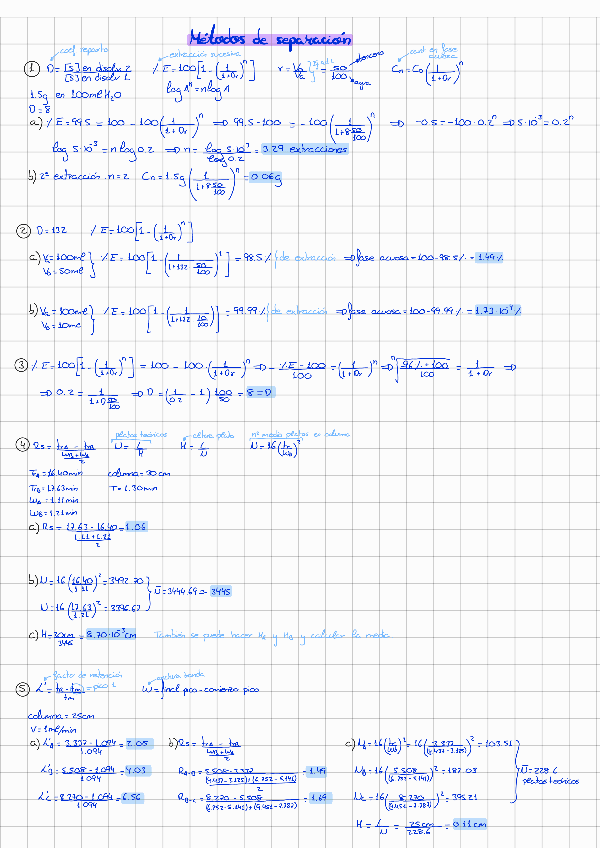 Métodos de separación
coef reparto
extracción sucesiva
cont en fase acuosa
① D = [S] en disolv 2 / [S] en disolv 1   % E = 100 [1 - (1/(1+Dr))^n]   r = V₀/Va = 50/100   Cn = C₀ (1/(1+Dr))^n
log A^n = n log A
1.5g en 100ml H₂O
D = 8
a) % E = 99.5 = 100 - 100 (1/(1+Dr))^n ⇒ 99.5 - 100 = -100 (1/(1+8·50/100))^n ⇒ -0.5 = -100·0.2^n ⇒ 5·10⁻³ = 0.2^n
log 5·10⁻³ = n log 0.2 ⇒ n = log 5·10⁻³ / log 0.2 = 3.29 extracciones
b) 2ª extracción. n = 2   Cn = 1.5g (1/(1+8·50/100))^n = 0.06g
② D = 132   % E = 100 [1 - (1/(1+Dr))^n]
a) Va = 100ml   V₀ = 50ml } % E = 100 [1 - (1/(1+132·50/100))^1] = 98.5 % de extracción ⇒ fase acuosa = 100 - 98.5 % = 1.49 %
b) Va = 100ml   V₀ = 10ml } % E = 100 [1 - (1/(1+132·50/100))] = 99.99 % de extracción ⇒ fase acuosa = 100 - 99.99 % =
③ % E = 100 [1 - (1/(1+Dr))^n] = 100 - 100·(1/(1+Dr))^n ⇒ - (%E - 100)/100 = (1/(1+Dr))^n ⇒
⇒ 0.2 = 1/(1+D 50/100) ⇒ D = (1/0.2 - 1) 100/50 = 8 = D
platos teóricos
altura plato
nº medio platos en columna
④ Rs = (trB - trA)/((WA+WB)/2)   N = L/H   H = L/N   N = 16 (tr/Wb)²
TrA = 16.40 min   columna = 30 cm
TrB = 17.63 min   T = 1.30 min
WA = 1.11 min
WB = 1.21 min
a) Rs = (17.63 - 16.40)/((1.11+1.21)/2) = 1.06
b) N = 16 (16.40/1.11)² = 3492.70
N = 16 (17.63/1.21)² = 3396.67   N̄ = 3444.69 ≈ 3445
c) H = 30cm/3445 = 8.70·10⁻³ cm   También se puede hacer HA y HB y calcular la media
factor de retención
anchura banda
⑤ K' = (tr - tm)/tm = pico 1   W = final pico - comienzo pico
columna = 25cm
V = 1ml/min
a) K'A = (3.337 - 1.094)/1.094 = 2.05   b) Rs = (trB - trA)/((WA+WB)/2)   c) NA = 16 (tr/Wb)² = 16 = 103.51
K'B = (5.508 - 1.094)/1.094 = 4.03   RA-B = = 1.49   NB = 16 = 187.03   N̄ = 228.6 platos teóricos
K'C = (8.270 - 1.094)/1.094 = 6.56   RB-C = = 1.69   NC = 16 = 395.21
H = L/N = 25cm/228.6 = 0.11cm